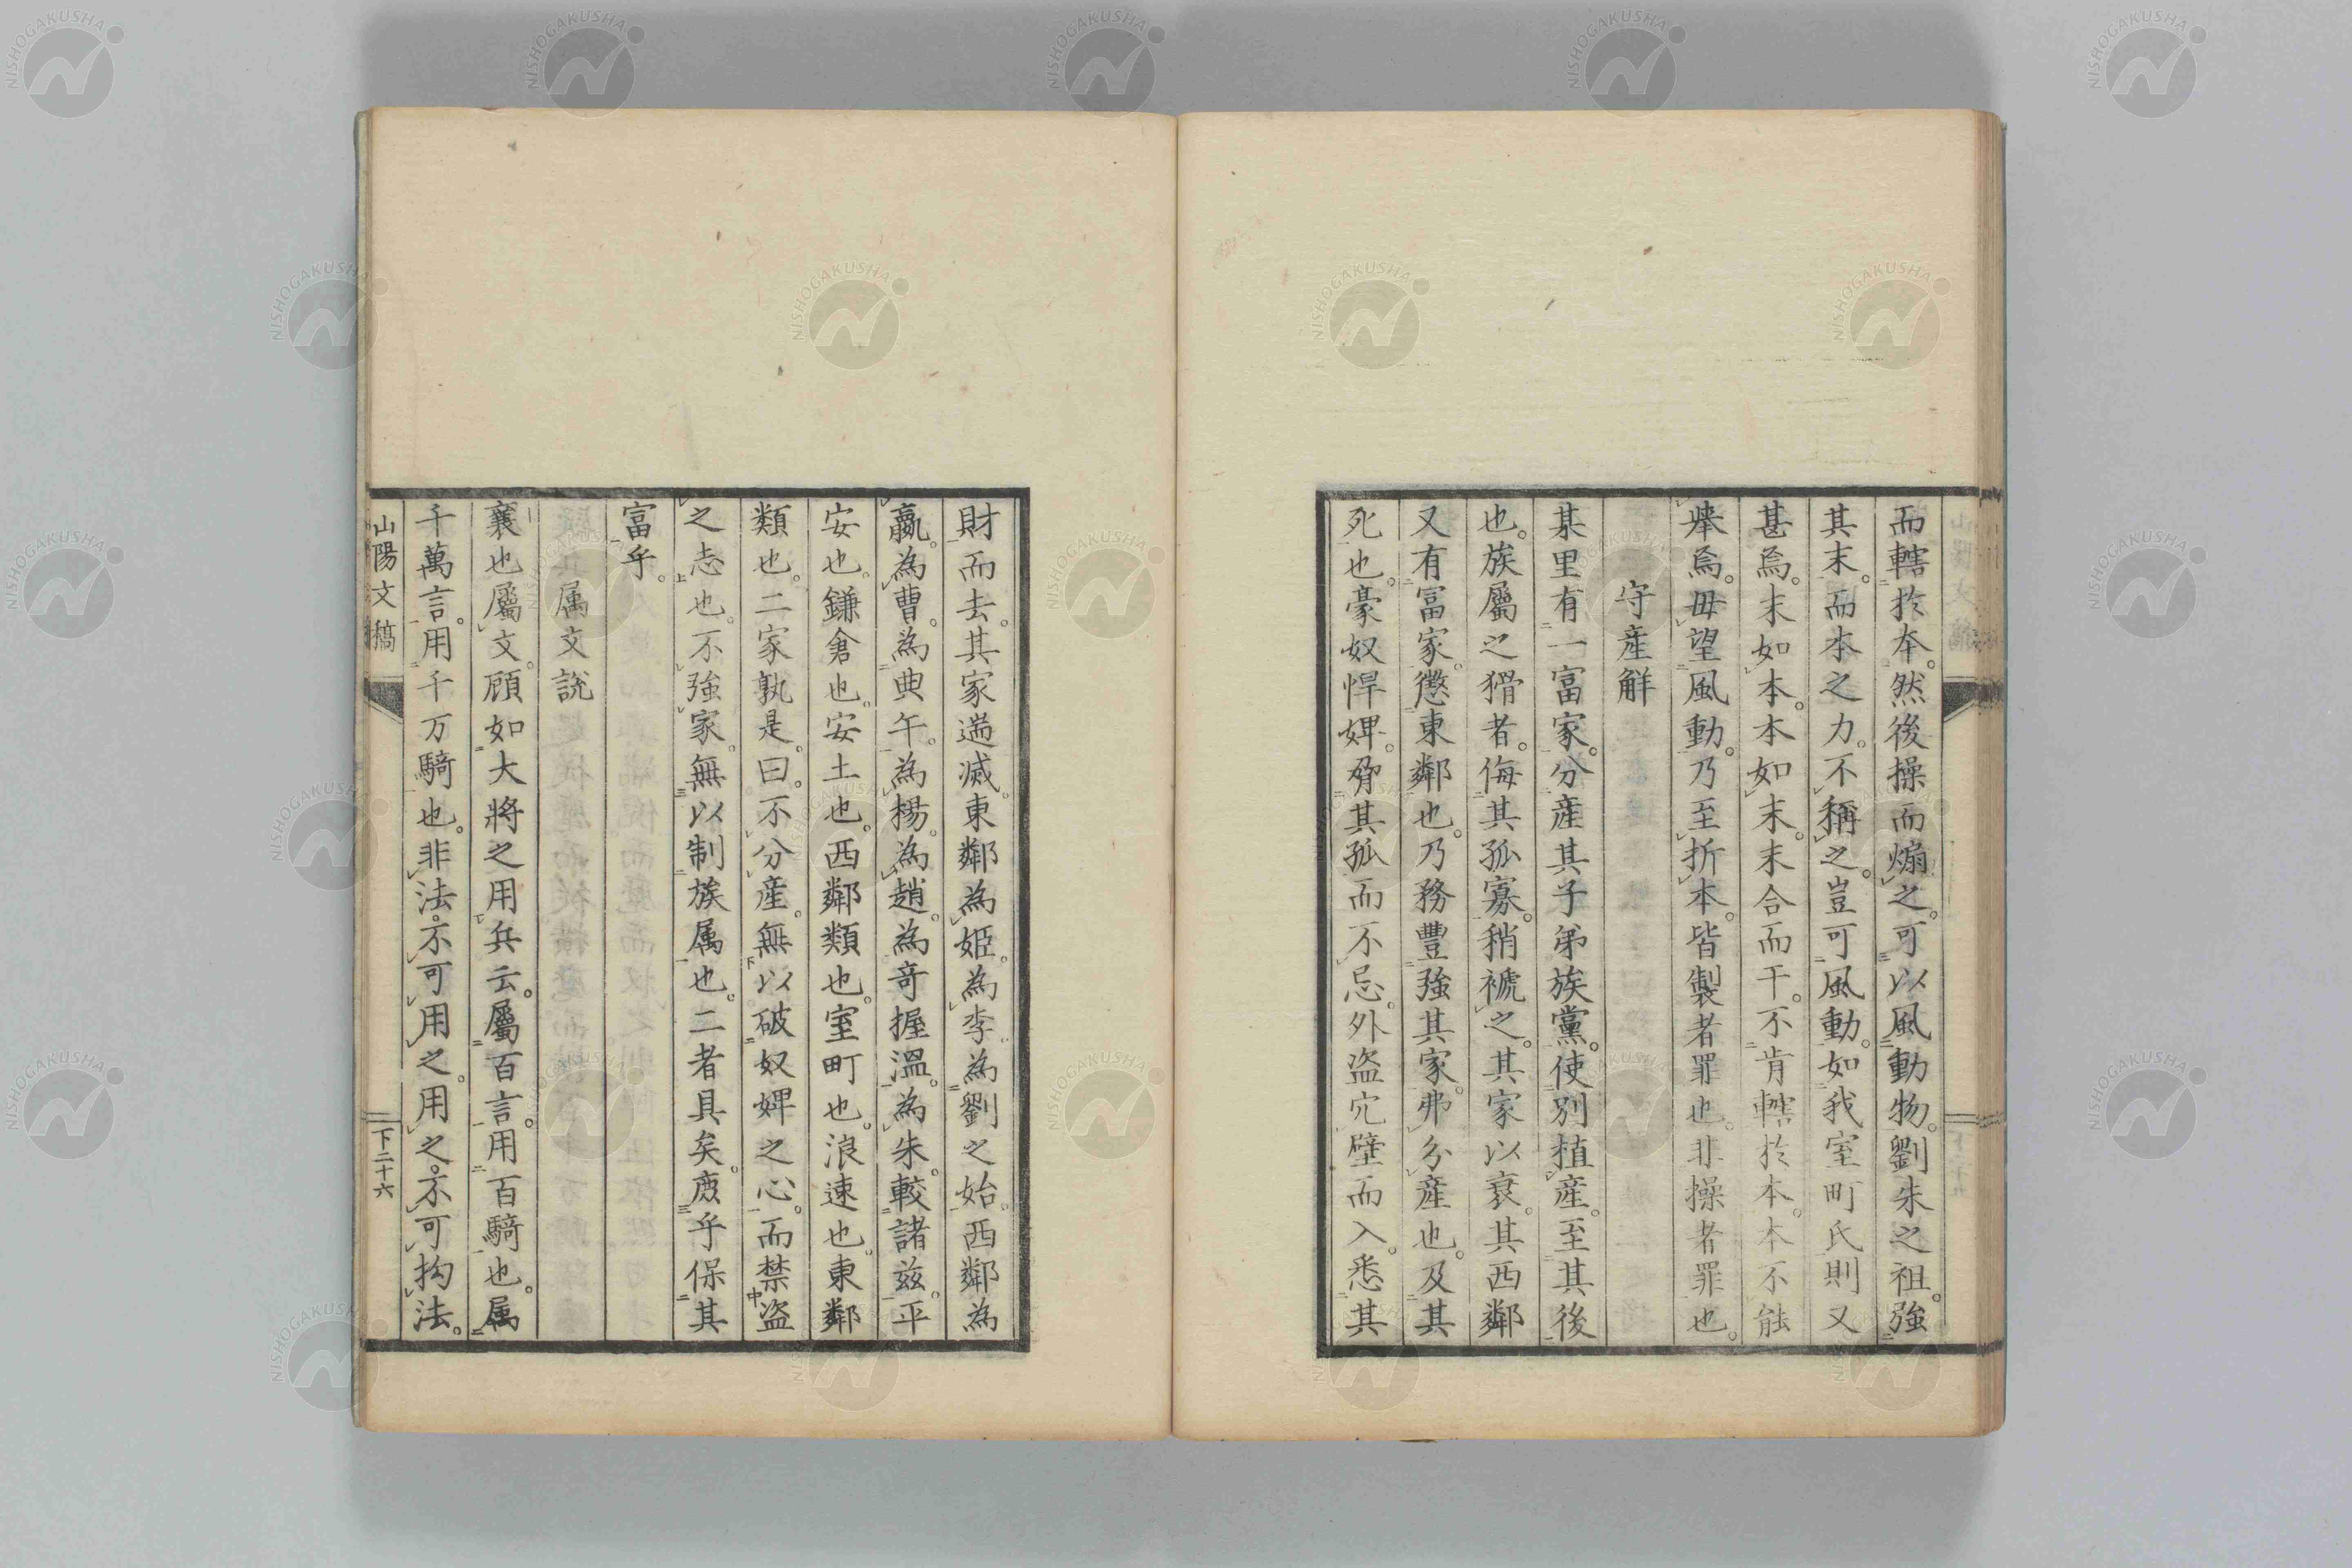 而轄於本。然後操而煽之。可以風動物。劉朱之祖。強
其末。而本之力。不稱之。豈可風動。如我室町氏則又
甚焉。末如本。本如末。末合而干。不肯轄於本。本不能
舉焉。毋望風動。乃至折本。皆製者罪也。非操者罪也。
守産解
某里有一富家。分産其子弟族黨。使別植産。至其後
也。族屬之猾者。侮其孤寡。稍褫之。其家以衰。其西鄰
又有冨家。懲東鄰也。乃務豐強其家。弗分産也。及其
死也。豪奴悍婢。脅其孤而不忌。外盗穴壁而入。悉其
財而去。其家遄滅。東鄰為姫。為李為劉之始。西鄰為
嬴。為曹。為典午。為楊。為趙。為竒握溫。為朱。較諸兹。平
安也。鎌倉也。安土也。西鄰類也。室町也。浪速也。東鄰
類也。二家孰是。曰。不分産。無以破奴婢之心。而禁盗
之志也。不強家。無以制族属也。二者具矣。庶乎保其
富乎。
属文説
襄也屬文。顧如大將之用兵云。屬百言。用百騎也。属
千萬言。用千万騎也。非法。不可用之。用之。不可拘法。
山陽文稿
下二十六
NISHOGAKUSHA